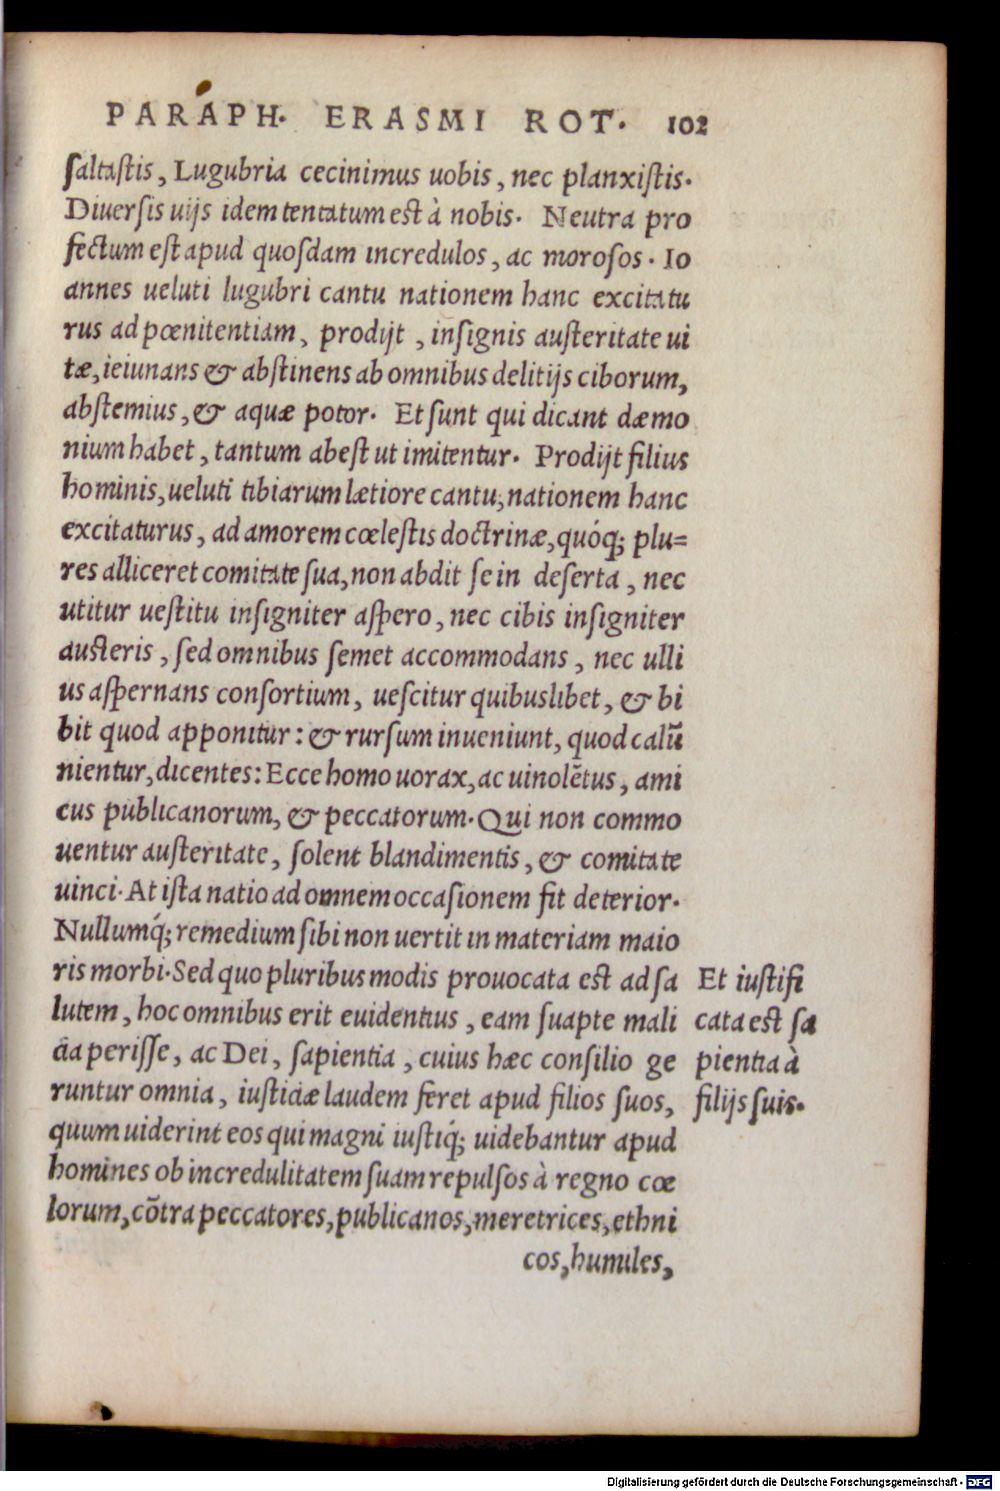 PARAPH. ERASMI ROT. 102
ſaltaſtis, Lugubria cecinimus uobis, nec planxiſtis.
Diuerſis uijs idem tentatum eſt à nobis. Neutra pro
fectum eſt apud quoſdam incredulos, ac moroſos. Io
annes ueluti lugubri cantu nationem hanc excitatu
rus ad pœnitentiam, prodijt, inſignis auſteritate ui
tæ, ieiunans & abſtinens ab omnibus delitijs ciborum,
abſtemius, & aquæ potor. Et ſunt qui dicant dæmo
nium habet, tantum abeſt ut imitentur. Prodijt filius
hominis, ueluti tibiarum lætiore cantu, nationem hanc
excitaturus, ad amorem cœleſtis doctrinæ, quóq; plu=
res alliceret comitate ſua, non abdit ſe in deſerta, nec
utitur ueſtitu inſigniter aſpero, nec cibis inſigniter
auſteris, ſed omnibus ſemet accommodans, nec ulli
us aſpernans conſortium, ueſcitur quibuslibet, & bi
bit quod apponitur: & rurſum inueniunt, quod calũ
nientur, dicentes: Ecce homo uorax, ac uinolẽtus, ami
cus publicanorum, & peccatorum. Qui non commo
uentur auſteritate, ſolent blandimentis, & comitate
uinci. At iſta natio ad omnem occaſionem fit deterior.
Nullumq́; remedium ſibi non uertit in materiam maio
ris morbi. Sed quo pluribus modis prouocata eſt ad ſa
lutem, hoc omnibus erit euidentius, eam ſuapte mali
cia periſſe, ac Dei, ſapientia, cuius hæc conſilio ge
runtur omnia, iuſticiæ laudem feret apud filios ſuos,
quum uiderint eos qui magni iuſtiq́; uidebantur apud
homines ob incredulitatem ſuam repulſos à regno cœ
lorum, cõtra peccatores, publicanos, meretrices, ethni
cos, humiles,
Et iuſtifi
cata eſt ſa
pientia à
filijs ſuis.
Digitalisierung gefördert durch die Deutsche Forschungsgemeinschaft - DFG